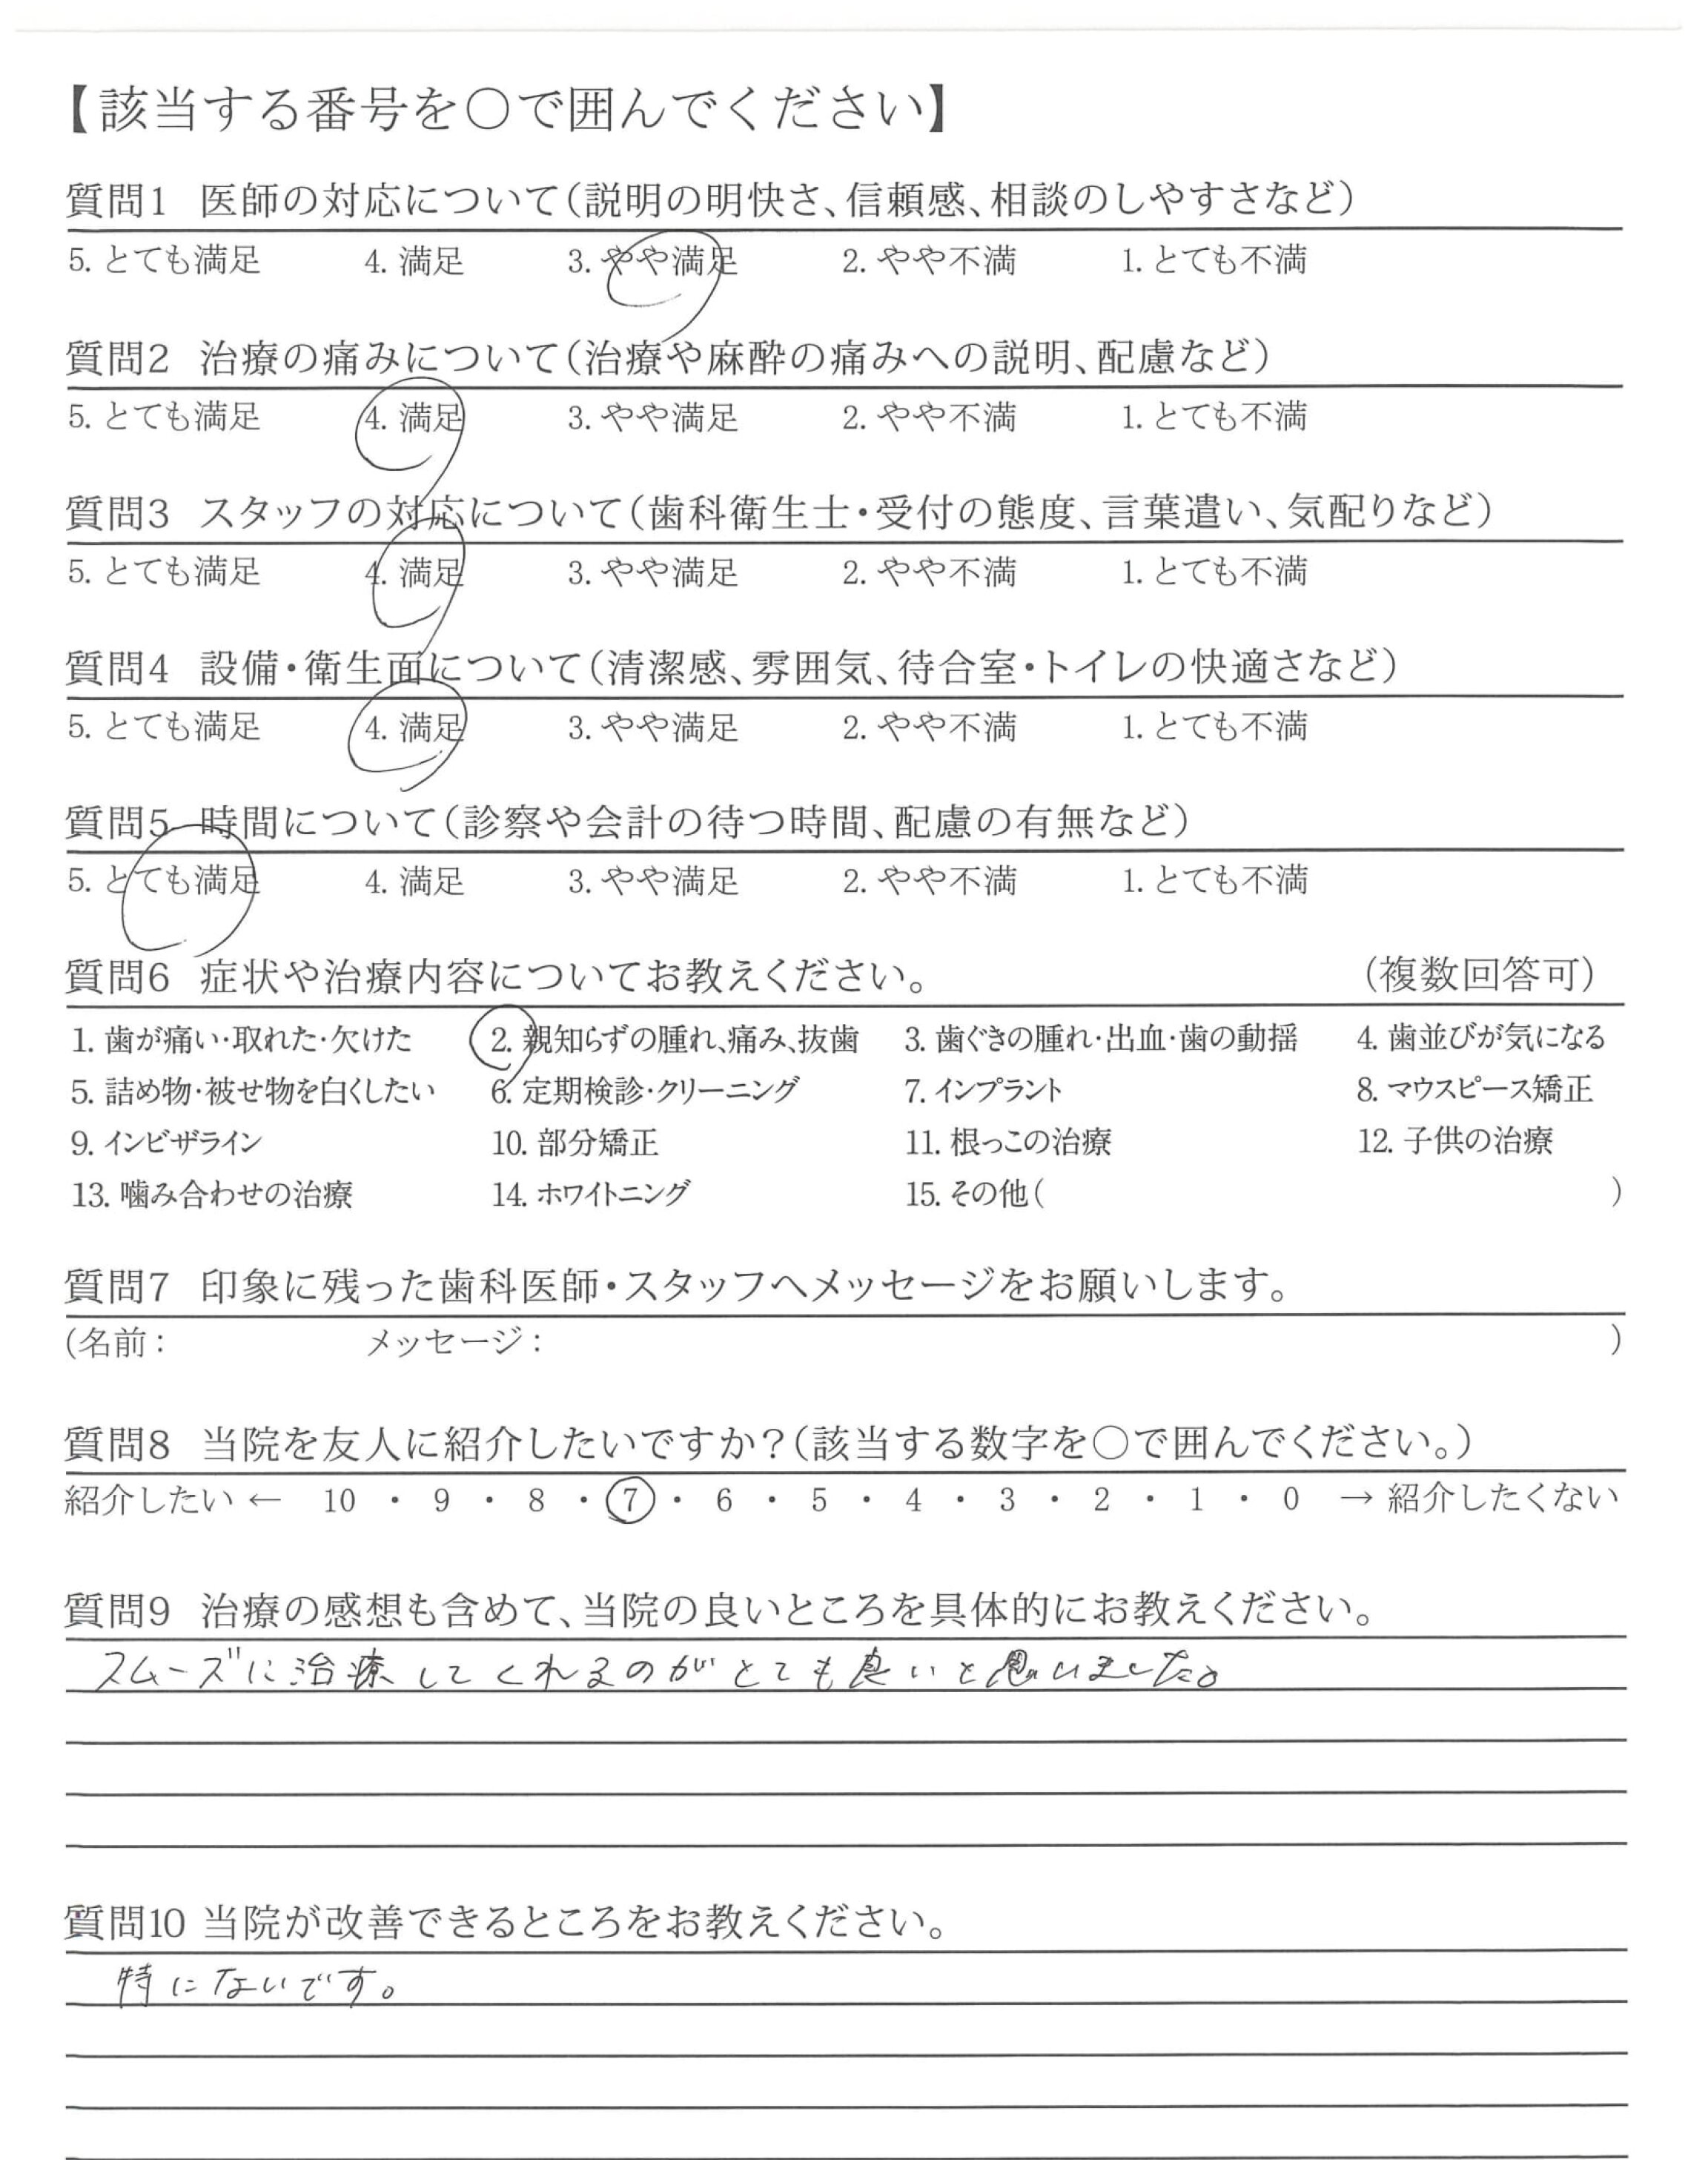 【該当する番号を○で囲んでください】
質問1 医師の対応について(説明の明快さ、信頼感、相談のしやすさなど)
5. とても満足 4. 満足 3. やや満足 2. やや不満 1. とても不満
質問2 治療の痛みについて(治療や麻酔の痛みへの説明、配慮など)
5. とても満足 4. 満足 3. やや満足 2. やや不満 1. とても不満
質問3 スタッフの対応について(歯科衛生士・受付の態度、言葉遣い、気配りなど)
5. とても満足 4. 満足 3. やや満足 2. やや不満 1. とても不満
質問4 設備・衛生面について(清潔感、雰囲気、待合室・トイレの快適さなど)
5. とても満足 4. 満足 3. やや満足 2. やや不満 1. とても不満
質問5 時間について(診察や会計の待つ時間、配慮の有無など)
5. とても満足 4. 満足 3. やや満足 2. やや不満 1. とても不満
質問6 症状や治療内容についてお教えください。 (複数回答可)
1. 歯が痛い・取れた・欠けた 2. 親知らずの腫れ、痛み、抜歯 3. 歯ぐきの腫れ・出血・歯の動揺 4. 歯並びが気になる
5. 詰め物・被せ物を白くしたい 6. 定期検診・クリーニング 7. インプラント 8. マウスピース矯正
9. インビザライン 10. 部分矯正 11. 根っこの治療 12. 子供の治療
13. 噛み合わせの治療 14. ホワイトニング 15. その他( )
質問7 印象に残った歯科医師・スタッフへメッセージをお願いします。
(名前: メッセージ: )
質問8 当院を友人に紹介したいですか?(該当する数字を○で囲んでください。)
紹介したい ← 10 ・ 9 ・ 8 ・ 7 ・ 6 ・ 5 ・ 4 ・ 3 ・ 2 ・ 1 ・ 0 → 紹介したくない
質問9 治療の感想も含めて、当院の良いところを具体的にお教えください。
スムーズに治療してくれるのがとても良いと思いました。
質問10 当院が改善できるところをお教えください。
特にないです。